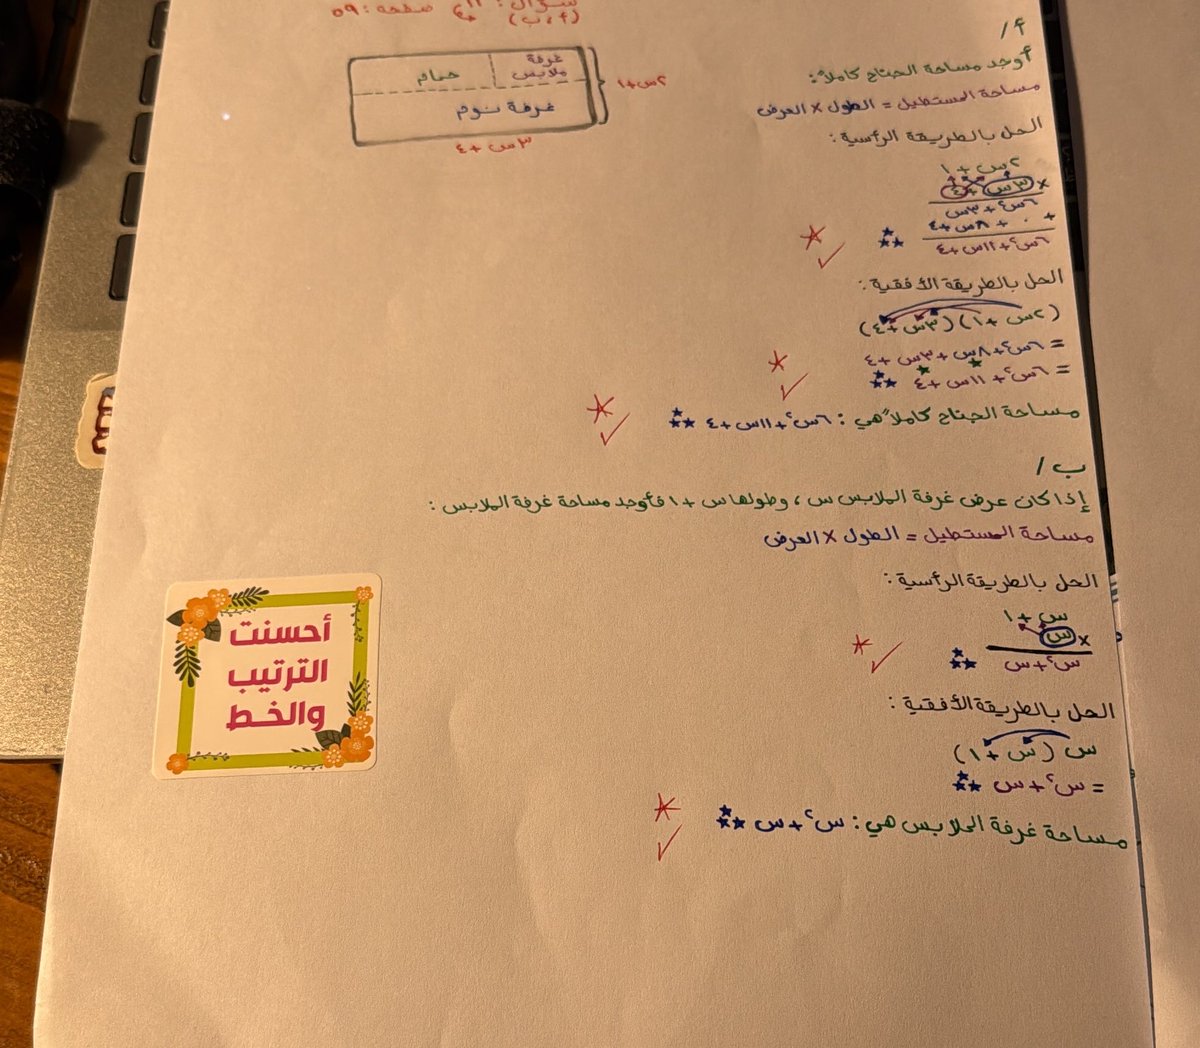 سؤال: ١١ صفحة: ٥٩
(أ، ب)
غرفة ملابس
حمام
غرفة نوم
٢س+١
٣س+٤
أ /
أوجد مساحة الجناح كاملاً:
مساحة المستطيل = الطول × العرض
الحل بالطريقة الرأسية:
٢س+١
× ٣س+٤
٦س²+٣س
+ ٠ + ٨س+٤
٦س²+١١س+٤
الحل بالطريقة الأفقية:
(٢س+١)(٣س+٤)
= ٦س²+٨س+٣س+٤
= ٦س²+١١س+٤
مساحة الجناح كاملاً هي: ٦س²+١١س+٤
ب /
إذا كان عرض غرفة الملابس س، وطولها س+١ فأوجد مساحة غرفة الملابس:
مساحة المستطيل = الطول × العرض
الحل بالطريقة الرأسية:
س+١
× س
س²+س
الحل بالطريقة الأفقية:
س(س+١)
= س²+س
مساحة غرفة الملابس هي: س²+س
أحسنت
الترتيب
والخط